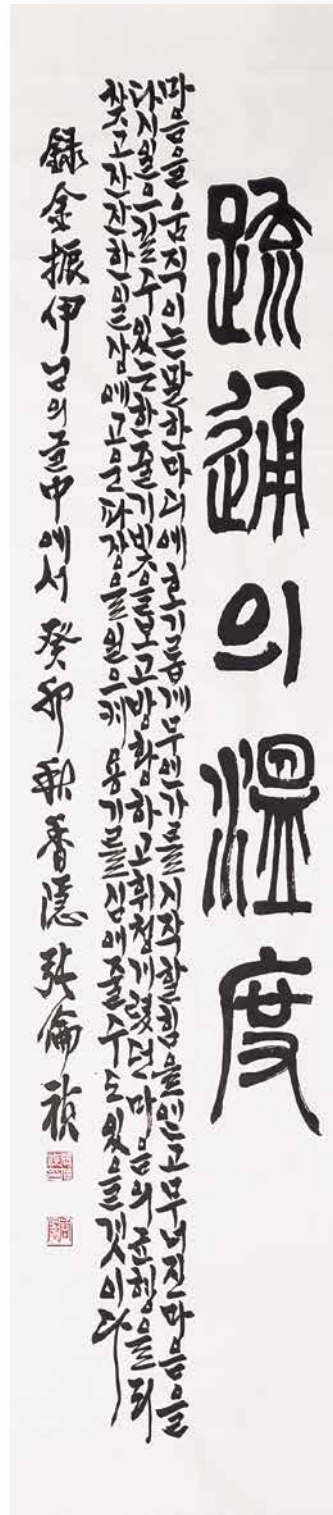 疏通의溫度
마음을움직이는말한마디에호기롭게무언가를시작할힘을얻고무너진마음을
다시일으킬수있는한줄기빛을보고방황하고휘청거렸던마음의균형을되
찾고잔잔한일상에고운파장을일으켜용기를심어줄수도있을것이다
錄金振伊님의글中에서癸卯秋香隱張倫禎